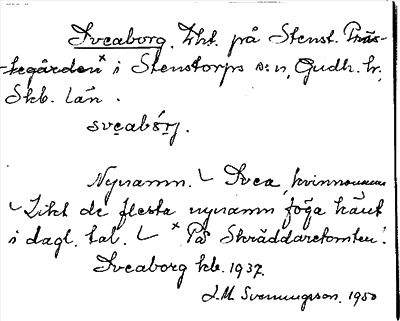 Sveaborg, Lht. på Stenst. Präs-
-tegården× i Stenstorps s:n, Gudh. hr,
Skb. län.
sveabórj.
Nynamn. ✓ Svea, kvinnonamn
✓ Likt de flesta nynamn föga känt
i dagl. tal. ✓ × På Skräddaretomten.
Sveaborg kb. 1937.
J. M. Svenungsson. 1950